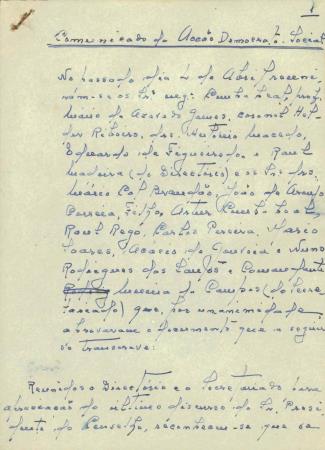 1
Comunicado da Acção Democrato-Social
No passado dia 2 de Abril
ram-se os Srs. eng. Cunha Leal, prof.
Mário de Azevedo Gomes, coronel Hél-
der Ribeiro, drs. António Macedo,
Eduardo de Figueiredo e Raul
Madeira (do Directório) e os Srs. drs.
Mário Cal Brandão, João de Araújo
Correia, Artur Cunha
Raul Rego, Carlos Pereira, Mário
Soares, Acácio de Gouveia e Nuno
Rodrigues dos Santos e Comandante
Moreira de Campos (do Secre-
tariado) que, por unanimidade
aprovaram o documento que a seguir
se transcreve:
Reunidos o Directório e o Secretariado para
apreciação do último discurso do Sr. Presi-
dente do Conselho, reconheceu-se que se